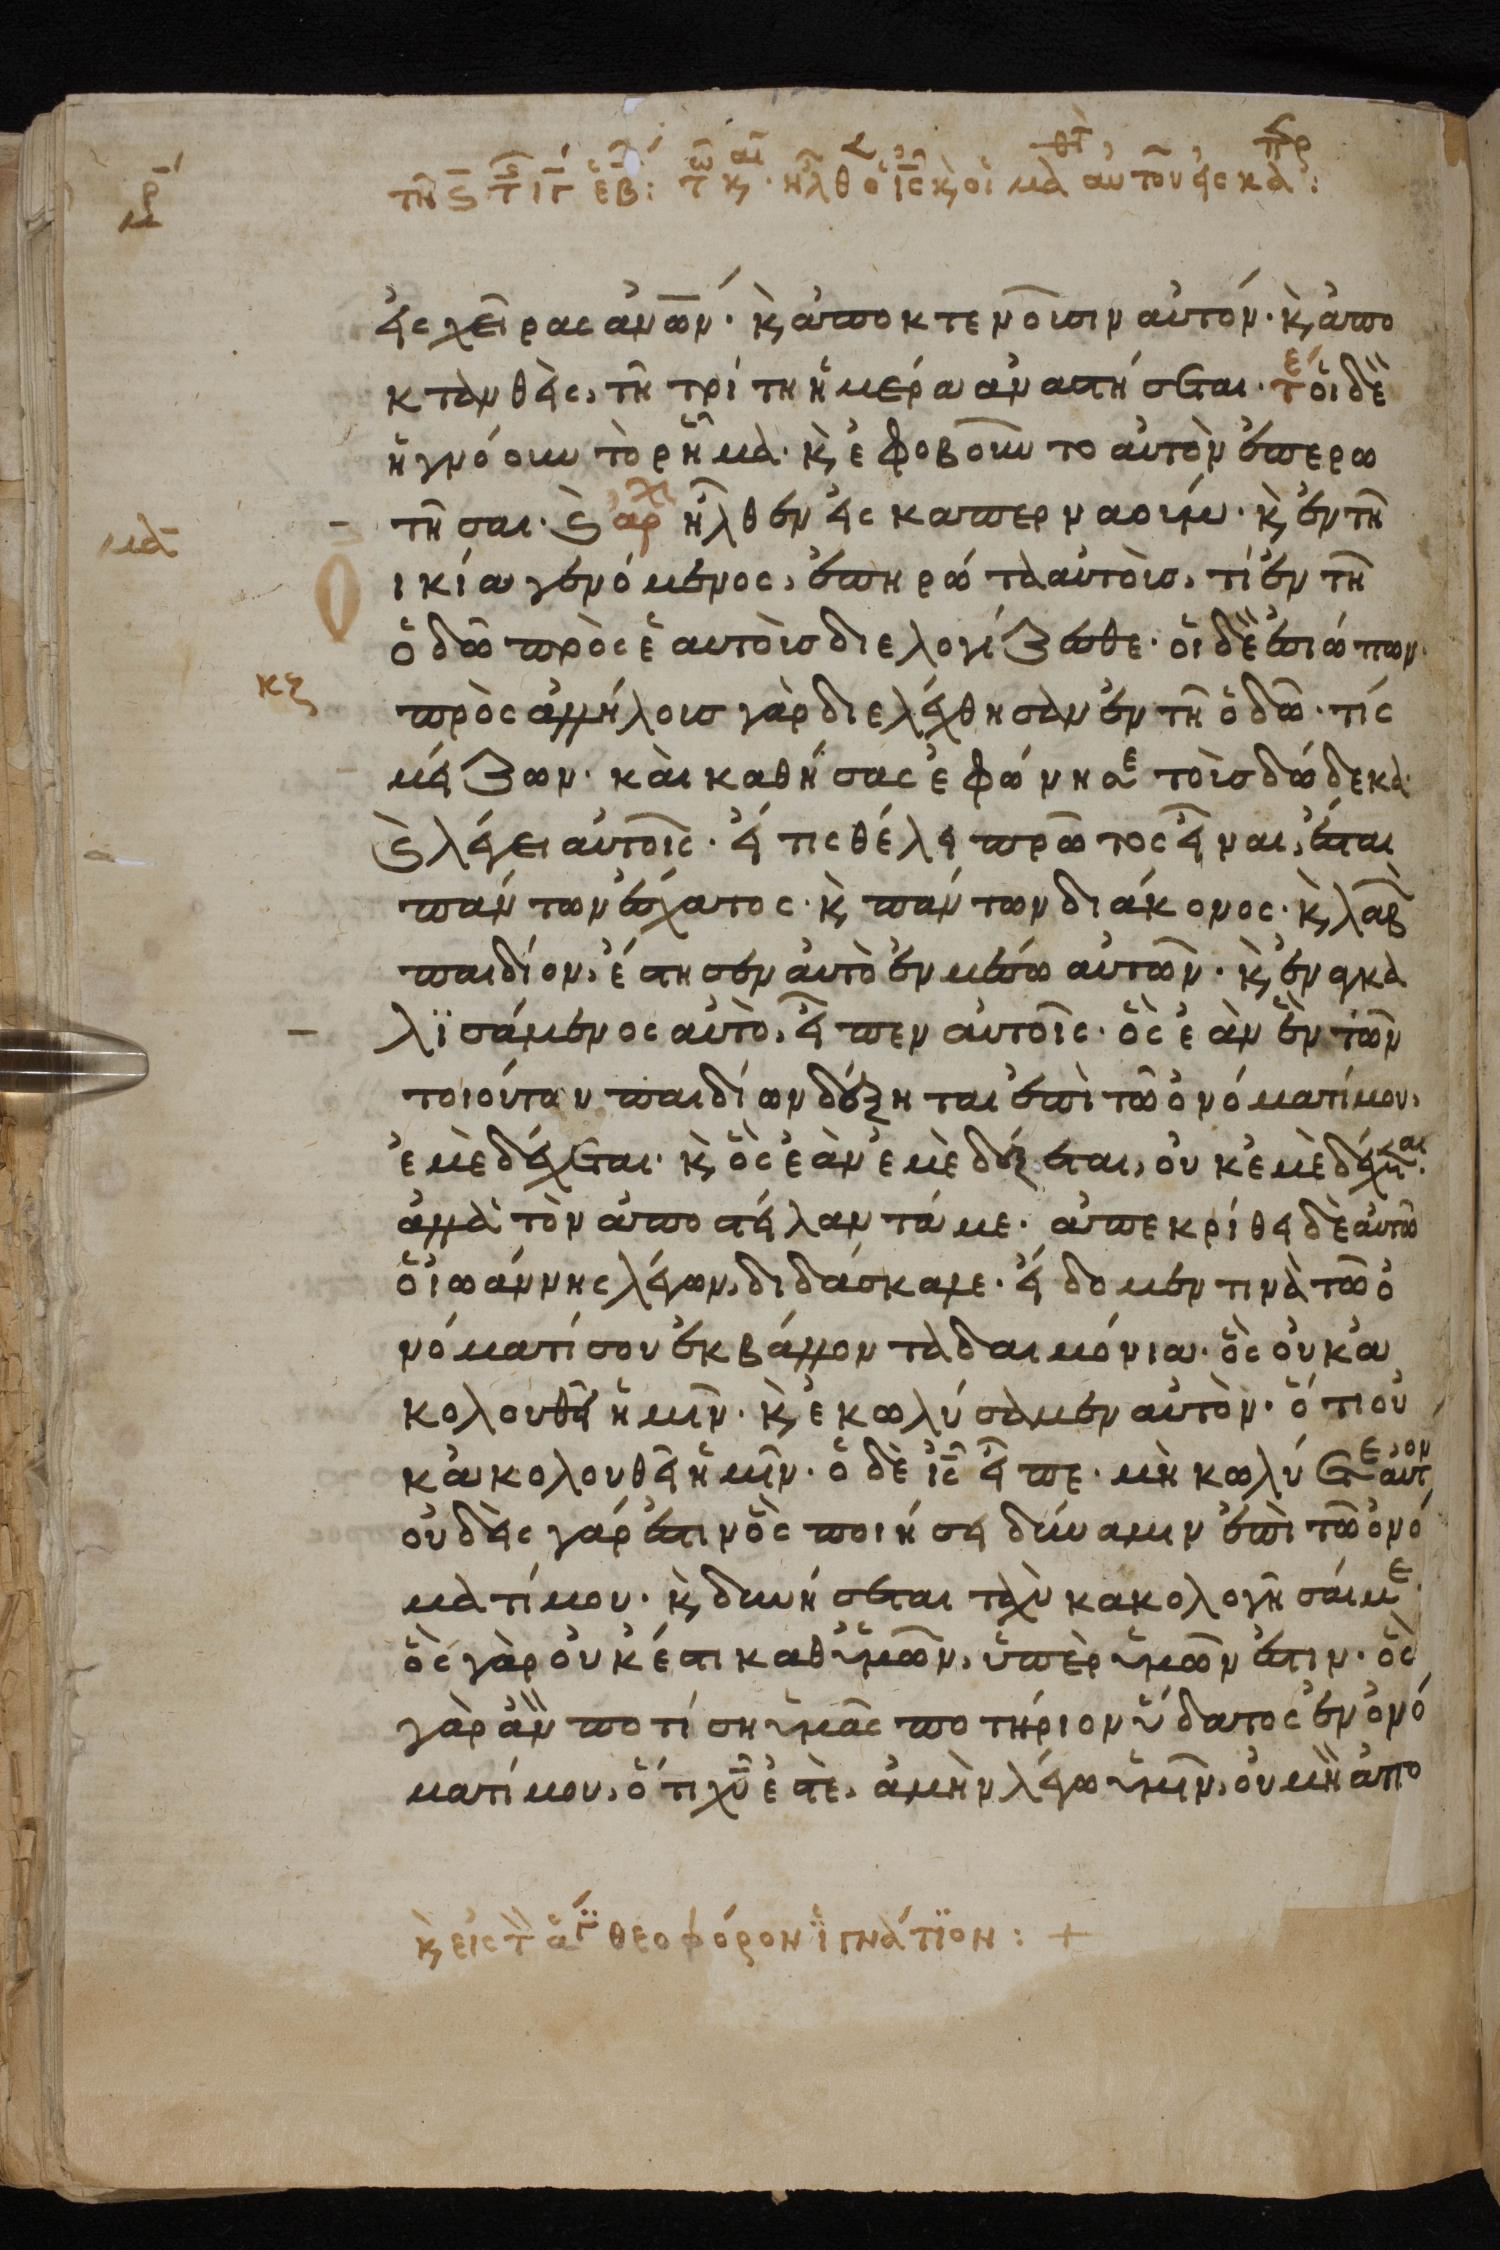 τῇ ϛ τ ιγ ἑβ: τ κ, · ἦλθ ὁ ἰς κ, οἱ μα αὐτοῦ εἰς κα:
εἰς χεῖρας ἀνῶν· κ, ἀποκτενοῦσιν αὐτόν· κ, ἀπο
κτανθεὶς, τῇ τρίτη ἡμέρα ἀναστήσεται· τε οἱ δὲ
ἠγνόουν τὸ ρῆμα· κ, ἐφοβοῦντο αὐτὸν ἐπερω
τῆσαι· ϛ αρχ ἦλθεν εἰς καπερναούμ· κ, ἐν τῆ
ικία γενόμενος, ἐπηρώτα αὐτοὺς, τί ἐν τῆ
ὁδῶ πρὸς ἑαυτοὺς διελογίζεσθε· οἱ δὲ ἐσιώπων·
πρὸς ἀλλήλους γὰρ διελέχθησαν ἐν τῆ ὁδῶ· τίς
μείζων· καὶ καθήσας ἐφώνησε τοὺς δώδεκα·
ϛ λέγει αὐτοῖς· εἴ τις θέλει πρῶτος εἶναι, ἔσται
πάντων ἔσχατος· κ, πάντων διάκονος· κ, λαβὼ
παιδίον, ἔστησεν αὐτὸ ἐν μέσω αὐτῶν· κ, ἐναγκα
λϊσάμενος αὐτὸ, εἶπεν αὐτοῖς· ὃς ἐὰν ἓν τῶν
τοιούτων παιδίων δέξηται ἐπὶ τῶ ὀνόματί μου,
ἐμὲ δέχεται· κ, ὃς ἐὰν ἐμὲ δέξεται, οὐκ ἐμὲ δέχεται·
ἀλλὰ τὸν ἀποστείλαντά με· ἀπεκρίθει δὲ αὐτῶ
ὁ ἰωάννης λέγων, διδάσκαλε· εἴδομέν τινα τῶ ὀ
νόματί σου ἐκβάλλοντα δαιμόνια· ὃς οὐκ ἀ
κολουθεῖ ἡμῖν· κ, ἐκωλύσαμεν αὐτὸν· ὅτι οὐ
κ ἀκολουθεῖ ἡμῖν· ὁ δὲ ἰς εἶπε· μὴ κωλύετε αὐτον
οὐδεὶς γάρ ἐστιν ὃς ποιήσει δύναμιν ἐπὶ τῶ ὀνό
ματί μου· κ, δυνήσεται ταχὺ κακολογῆσαί με·
ὃς γὰρ οὐκ ἔστι καθ ὑμῶν, ὑπὲρ ὑμῶν ἐστιν· ὃς
γὰρ ἂν ποτίση ὑμᾶς ποτήριον ὕδατος ἐν ὀνό
ματί μου, ὅτι χῦ ἐστὲ, ἀμὴν λέγω ὑμῖν, οὐ μὴ ἀπο
κ, εἰς τ ἅγ θεοφόρον ἰγνάτϊον: +
μα
κζ